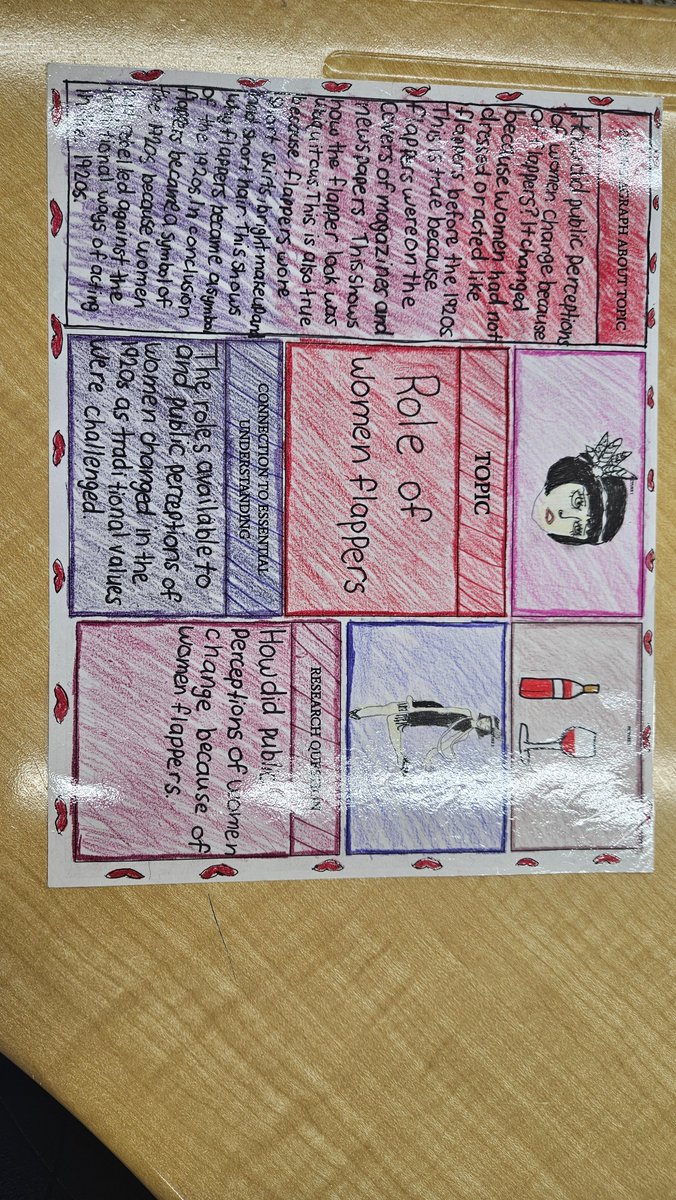 PARAGRAPH ABOUT TOPIC
How did public perceptions
of women Change because
of flappers? It changed
because women had not
dressed or acted like
flappers before the 1920s
This is true because
flappers were on the
Covers of magazines and
newspapers. This shows
how the flapper look was
ubiquitous. This is also true
because flappers wore
short skirts, bright makeup, and
short hair. This shows
why flappers became a symbol
of the 1920s. In conclusion
flappers became a symbol of
the 1920s, because women
rebelled against the
traditional ways of acting
in the 1920s.
TOPIC
Role of
women flappers
CONNECTION TO ESSENTIAL
UNDERSTANDING
The roles available to
and public perceptions of
women changed in the
1920s as traditional values
were challenged.
RESEARCH QUESTION
How did public
perceptions of women
change because of
women flappers.